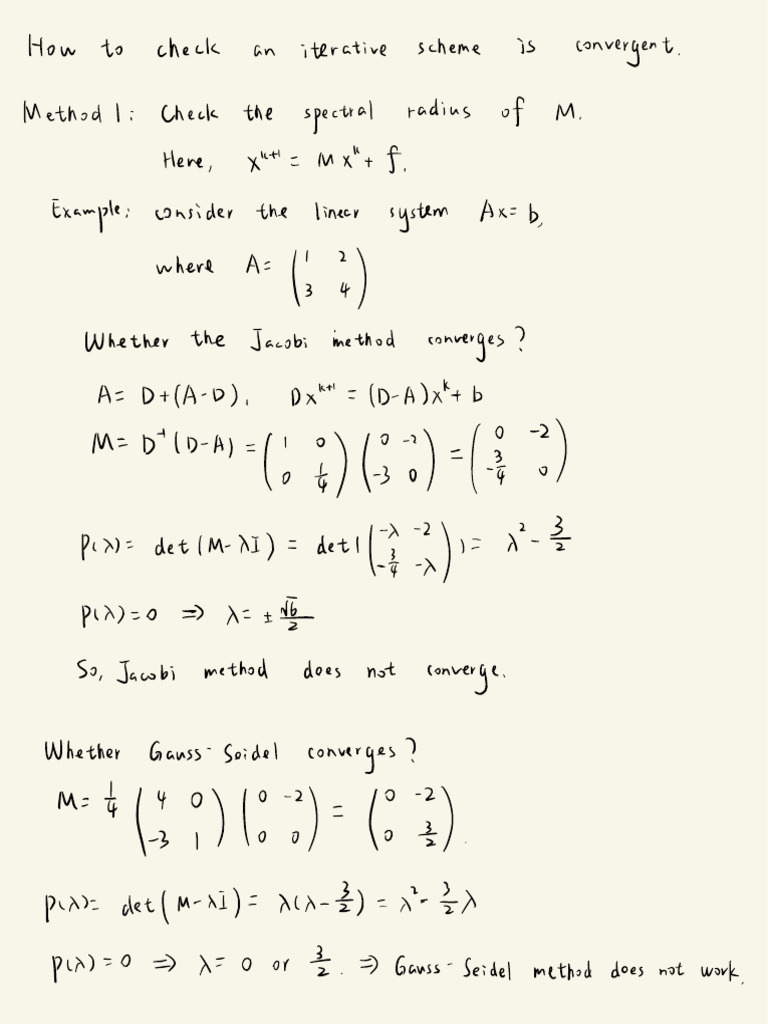 How to check an iterative scheme is convergent.
Method 1: Check the spectral radius of M.
Here, x^{k+1} = Mx^k + f.
Example: consider the linear system Ax = b,
where A = \begin{pmatrix} 1 & 2 \\ 3 & 4 \end{pmatrix}
Whether the Jacobi method converges?
A = D + (A-D), Dx^{k+1} = (D-A)x^k + b
M = D^{-1}(D-A) = \begin{pmatrix} 1 & 0 \\ 0 & \frac{1}{4} \end{pmatrix} \begin{pmatrix} 0 & -2 \\ -3 & 0 \end{pmatrix} = \begin{pmatrix} 0 & -2 \\ -\frac{3}{4} & 0 \end{pmatrix}
p(λ) = det(M-λI) = det(\begin{pmatrix} -λ & -2 \\ -\frac{3}{4} & -λ \end{pmatrix}) = λ^2 - \frac{3}{2}
p(λ) = 0 ⇒ λ = ± \frac{\sqrt{6}}{2}
So, Jacobi method does not converge.
Whether Gauss-Seidel converges?
M = \frac{1}{4} \begin{pmatrix} 4 & 0 \\ -3 & 1 \end{pmatrix} \begin{pmatrix} 0 & -2 \\ 0 & 0 \end{pmatrix} = \begin{pmatrix} 0 & -2 \\ 0 & \frac{3}{2} \end{pmatrix}.
p(λ) = det(M-λI) = λ(λ-\frac{3}{2}) = λ^2 - \frac{3}{2}λ
p(λ) = 0 ⇒ λ = 0 or \frac{3}{2}. ⇒ Gauss-Seidel method does not work.